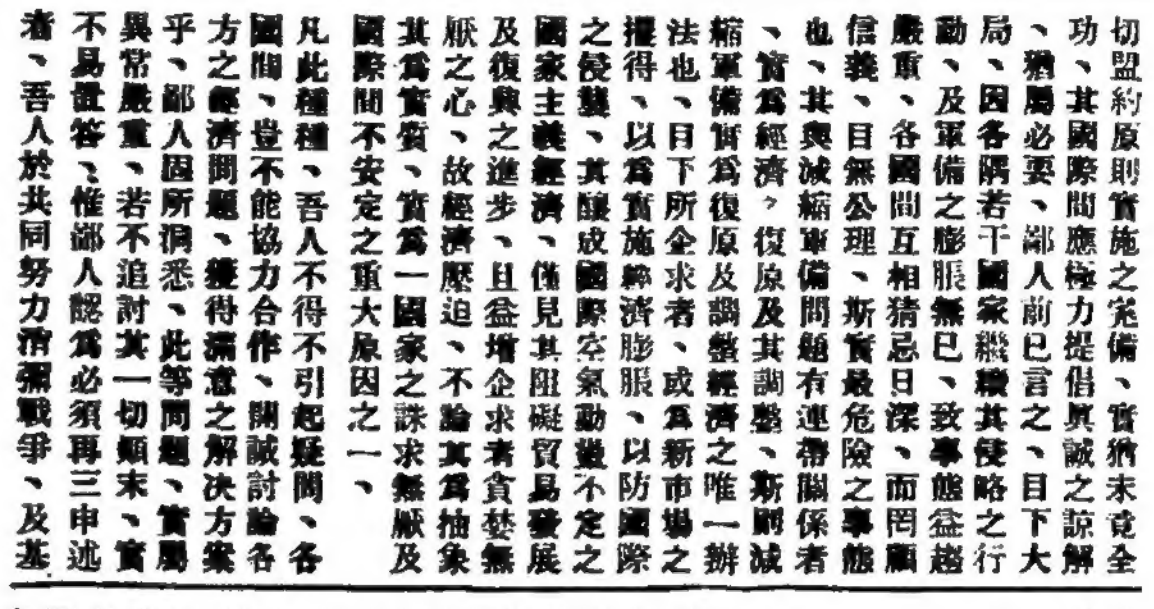 切盟約原則實施之完備、實猶未竟全
功、其國際間應極力提倡眞誠之諒解
、猶屬必要、鄙人前已言之、目下大
局、因各隅若干國家繼續其侵略之行
動、及軍備之膨脹無已、致事態益趨
嚴重、各國間互相猜忌日深、而罔顧
信義、目無公理、斯實最危險之事態
也、其與減縮軍備問題有連帶關係者
、實爲經濟、復原及其調整、斯則減
縮軍備實爲復原及調整經濟之唯一辦
法也、目下所企求者、或爲新市場之
攫得、以爲實施經濟膨脹、以防國際
之侵襲、其釀成國際空氣動盪不定之
國家主義經濟、僅見其阻礙貿易發展
及復興之進步、且益增企求者貪婪無
厭之心、故經濟壓迫、不論其爲抽象
其爲實質、實爲一國家之誅求無厭及
國際間不安定之重大原因之一、
凡此種種、吾人不得不引起疑問、各
國間、豈不能協力合作、開誠討論各
方之經濟問題、獲得滿意之解決方案
乎、鄙人固所洞悉、此等問題、實屬
異常嚴重、若不追討其一切顚末、實
不易置答、惟鄙人認爲必須再三申述
者、吾人於共同努力消彌戰爭、及基